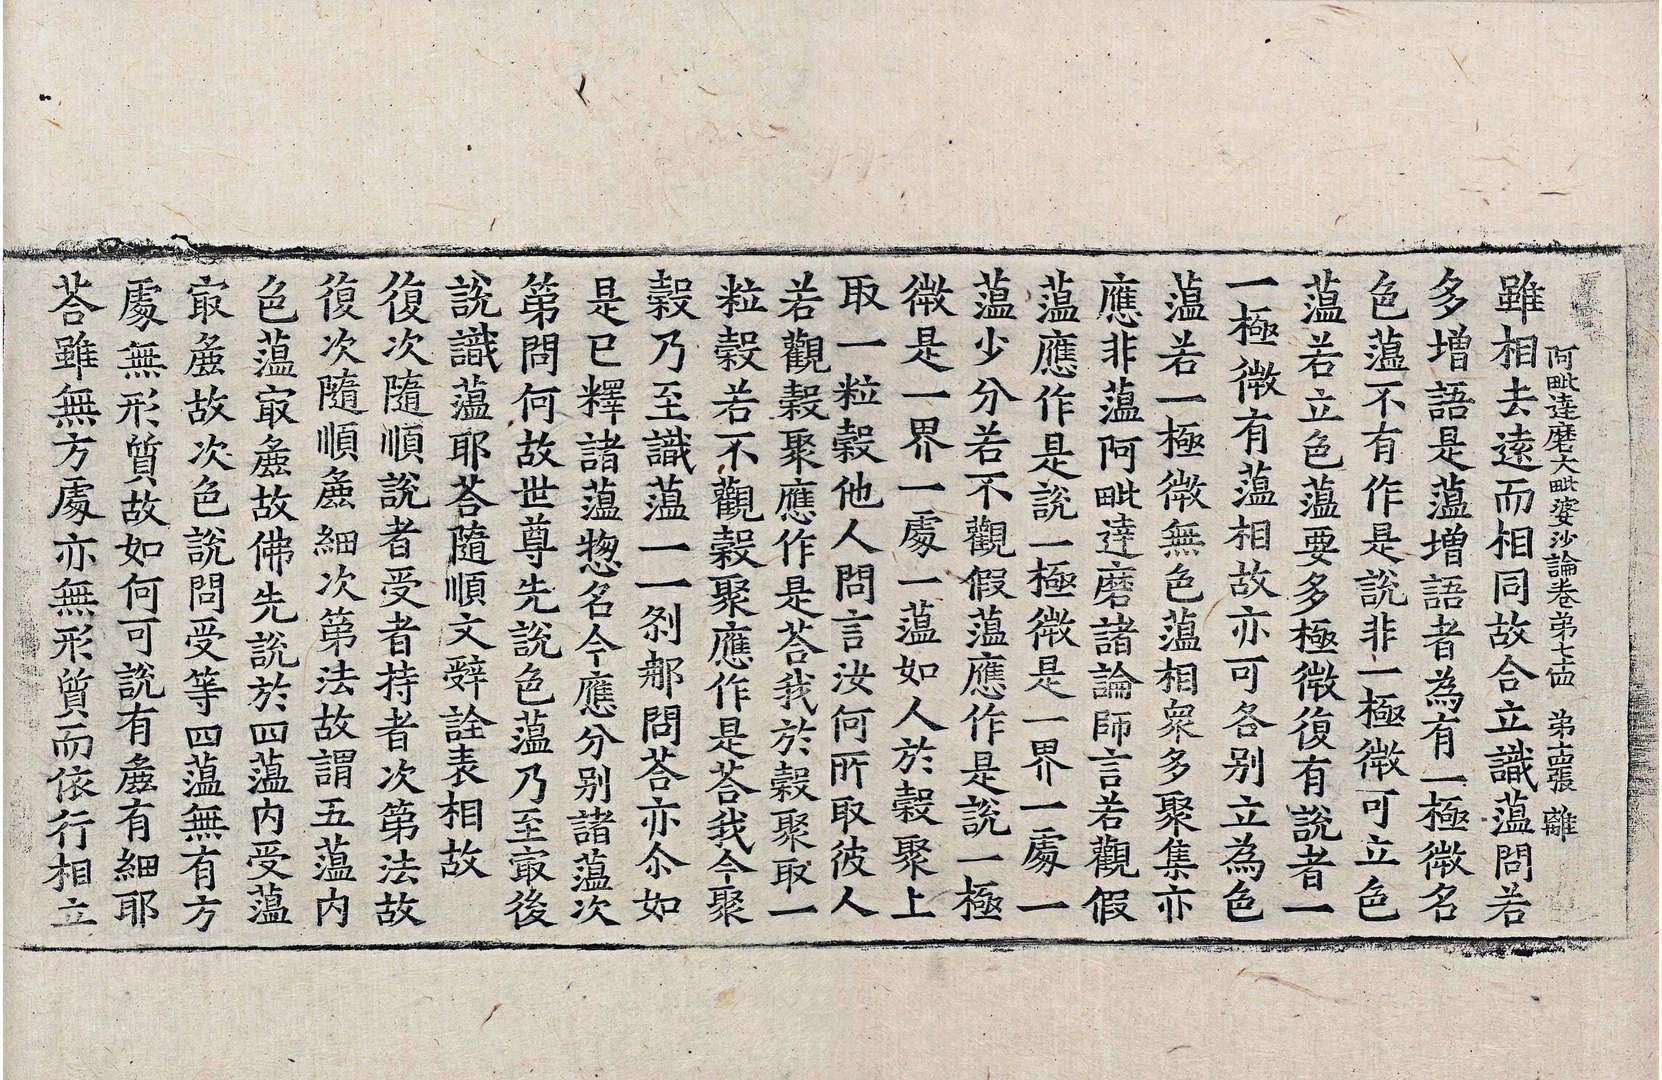 阿毗達磨大毗婆沙論卷第七十四　第十四張　離
雖相去遠而相同故合立識蘊問若
多增語是蘊增語者為有一極微名
色蘊不有作是說非一極微可立色
蘊若立色蘊要多極微復有說者一
一極微有蘊相故亦可各別立為色
蘊若一極微無色蘊相衆多聚集亦
應非蘊阿毗達磨諸論師言若觀假
蘊應作是說一極微是一界一處一
蘊少分若不觀假蘊應作是說一極
微是一界一處一蘊如人於穀聚上
取一粒穀他人問言汝何所取彼人
若觀穀聚應作是荅我於穀聚取一
粒穀若不觀穀聚應作是荅我今聚
穀乃至識蘊一一刹那問荅亦尒如
是已釋諸蘊惣名今應分別諸蘊次
第問何故世尊先說色蘊乃至㝡後
說識蘊耶荅隨順文辝詮表相故
復次隨順說者受者持者次第法故
復次隨順麁細次第法故謂五蘊內
色蘊㝡麁故佛先說於四蘊內受蘊
㝡麁故次色說問受等四蘊無有方
處無形質故如何可說有麁有細耶
荅雖無方處亦無形質而依行相立